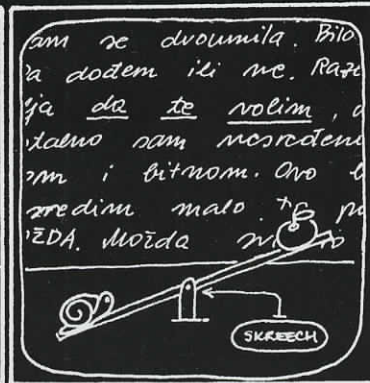 am se dvoumila. Bilo
a dođem ili ne. Raz
ja da te volim,
talno sam nesređen
om i bitnom. Ovo
sredim malo.
ŽDA. Možda
SKREECH